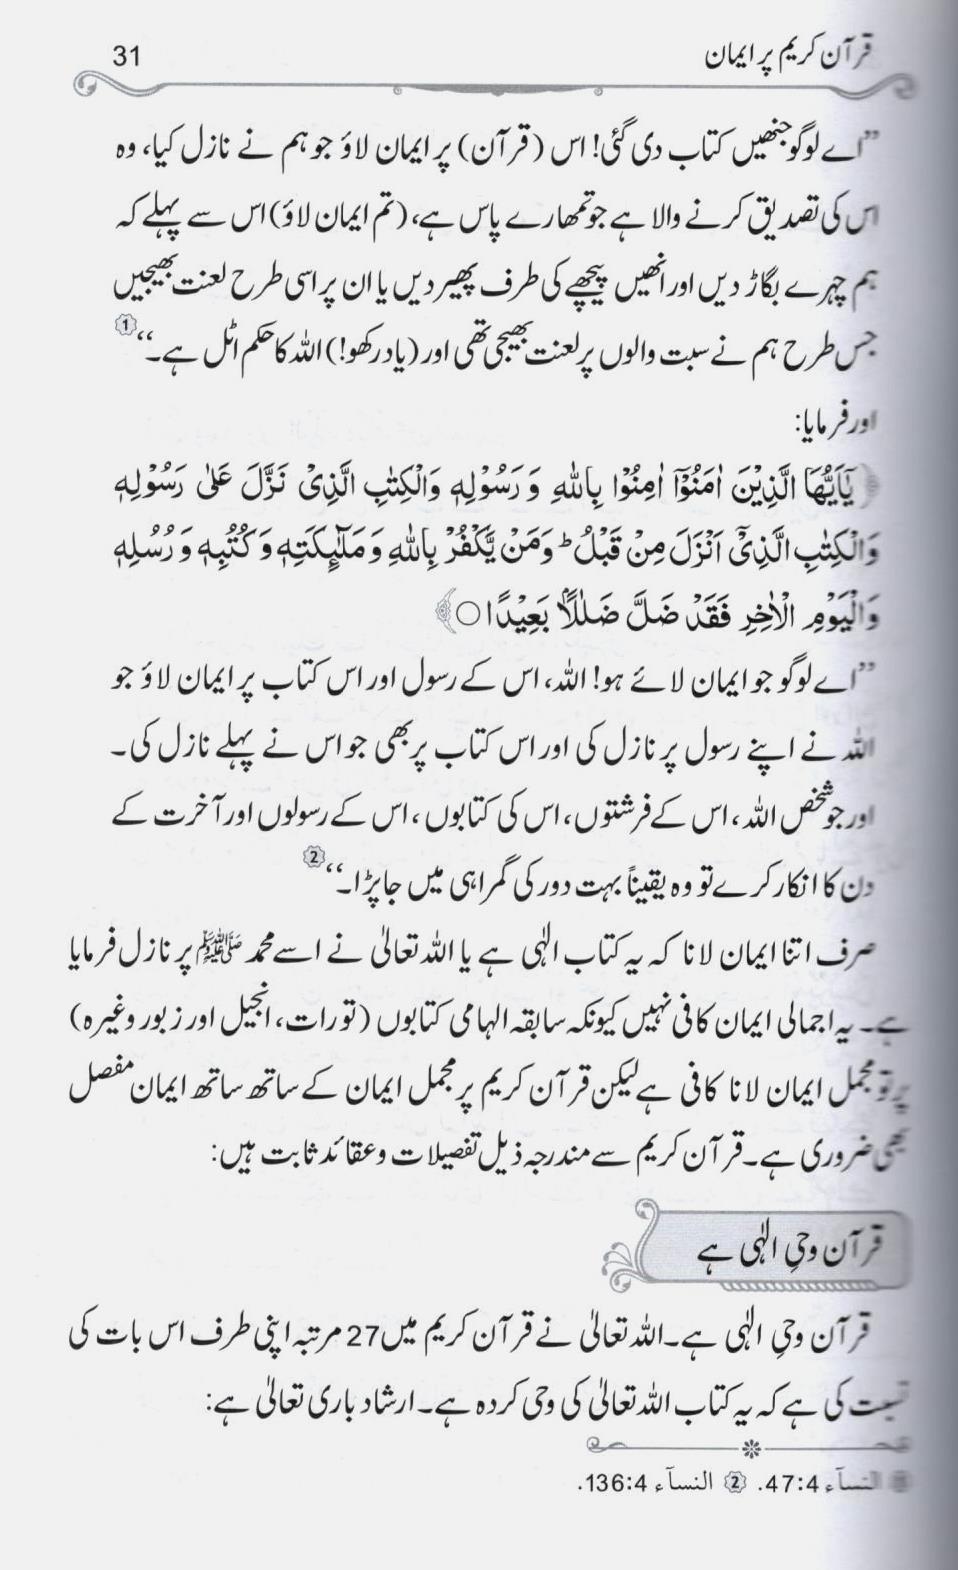 قرآن کریم پر ایمان 31
”اے لوگو جنھیں کتاب دی گئی! اس (قرآن) پر ایمان لاؤ جو ہم نے نازل کیا، وہ
اس کی تصدیق کرنے والا ہے جو تمھارے پاس ہے، (تم ایمان لاؤ) اس سے پہلے کہ
ہم چہرے بگاڑ دیں اور انھیں پیچھے کی طرف پھیر دیں یا ان پر اسی طرح لعنت بھیجیں
جس طرح ہم نے سبت والوں پر لعنت بھیجی تھی اور (یاد رکھو!) اللہ کا حکم اٹل ہے۔“ 1
اور فرمایا:
﴿یٰۤاَیُّهَا الَّذِیْنَ اٰمَنُوْۤا اٰمِنُوْا بِاللّٰهِ وَ رَسُوْلِهٖ وَ الْكِتٰبِ الَّذِیْ نَزَّلَ عَلٰی رَسُوْلِهٖ
وَ الْكِتٰبِ الَّذِیْۤ اَنْزَلَ مِنْ قَبْلُ ؕ وَ مَنْ یَّكْفُرْ بِاللّٰهِ وَ مَلٰٓىِٕكَتِهٖ وَ كُتُبِهٖ وَ رُسُلِهٖ
وَ الْیَوْمِ الْاٰخِرِ فَقَدْ ضَلَّ ضَلٰلًۢا بَعِیْدًا ○﴾
”اے لوگو جو ایمان لائے ہو! اللہ، اس کے رسول اور اس کتاب پر ایمان لاؤ جو
اللہ نے اپنے رسول پر نازل کی اور اس کتاب پر بھی جو اس نے پہلے نازل کی۔
اور جو شخص اللہ، اس کے فرشتوں، اس کی کتابوں، اس کے رسولوں اور آخرت کے
دن کا انکار کرے تو وہ یقیناً بہت دور کی گمراہی میں جا پڑا۔“ 2
صرف اتنا ایمان لانا کہ یہ کتاب الٰہی ہے یا اللہ تعالیٰ نے اسے محمد ﷺ پر نازل فرمایا
ہے۔ یہ اجمالی ایمان کافی نہیں کیونکہ سابقہ الہامی کتابوں (تورات، انجیل اور زبور وغیرہ)
پر تو مجمل ایمان لانا کافی ہے لیکن قرآن کریم پر مجمل ایمان کے ساتھ ساتھ ایمان مفصل
بھی ضروری ہے۔ قرآن کریم سے مندرجہ ذیل تفصیلات و عقائد ثابت ہیں:
قرآن وحیِ الٰہی ہے
قرآن وحیِ الٰہی ہے۔ اللہ تعالیٰ نے قرآن کریم میں 27 مرتبہ اپنی طرف اس بات کی
نسبت کی ہے کہ یہ کتاب اللہ تعالیٰ کی وحی کردہ ہے۔ ارشاد باری تعالیٰ ہے:
النسآء 47:4. 2 النسآء 136:4.